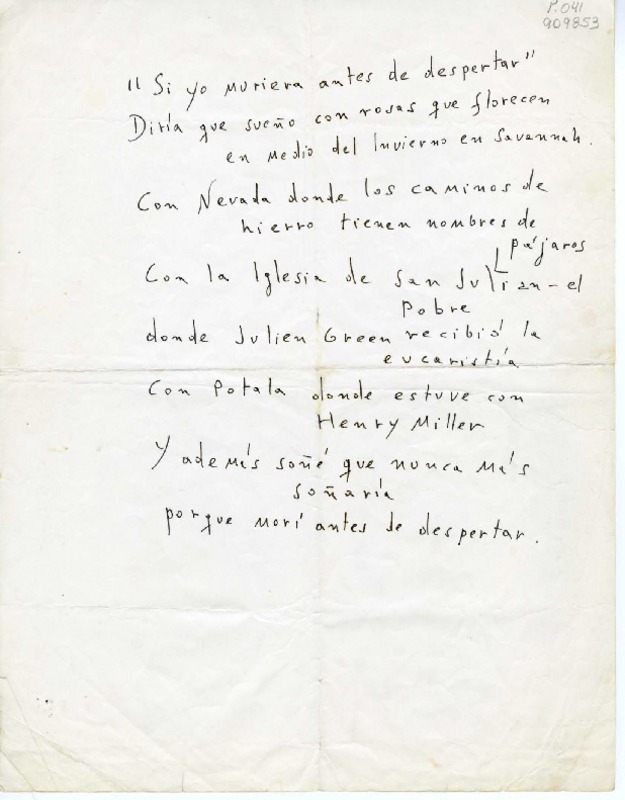 P.041
909853
"Si yo muriera antes de despertar"
Diría que sueño con rosas que florecen
en medio del Invierno en Savannah.
Con Nevada donde los caminos de
hierro tienen nombres de
pájaros
Con la Iglesia de San Julian-el
pobre
donde Julien Green recibió la
eucaristía
Con Potala donde estuve con
Henry Miller
Y además soñé que nunca más
soñaría
porque morí antes de despertar.